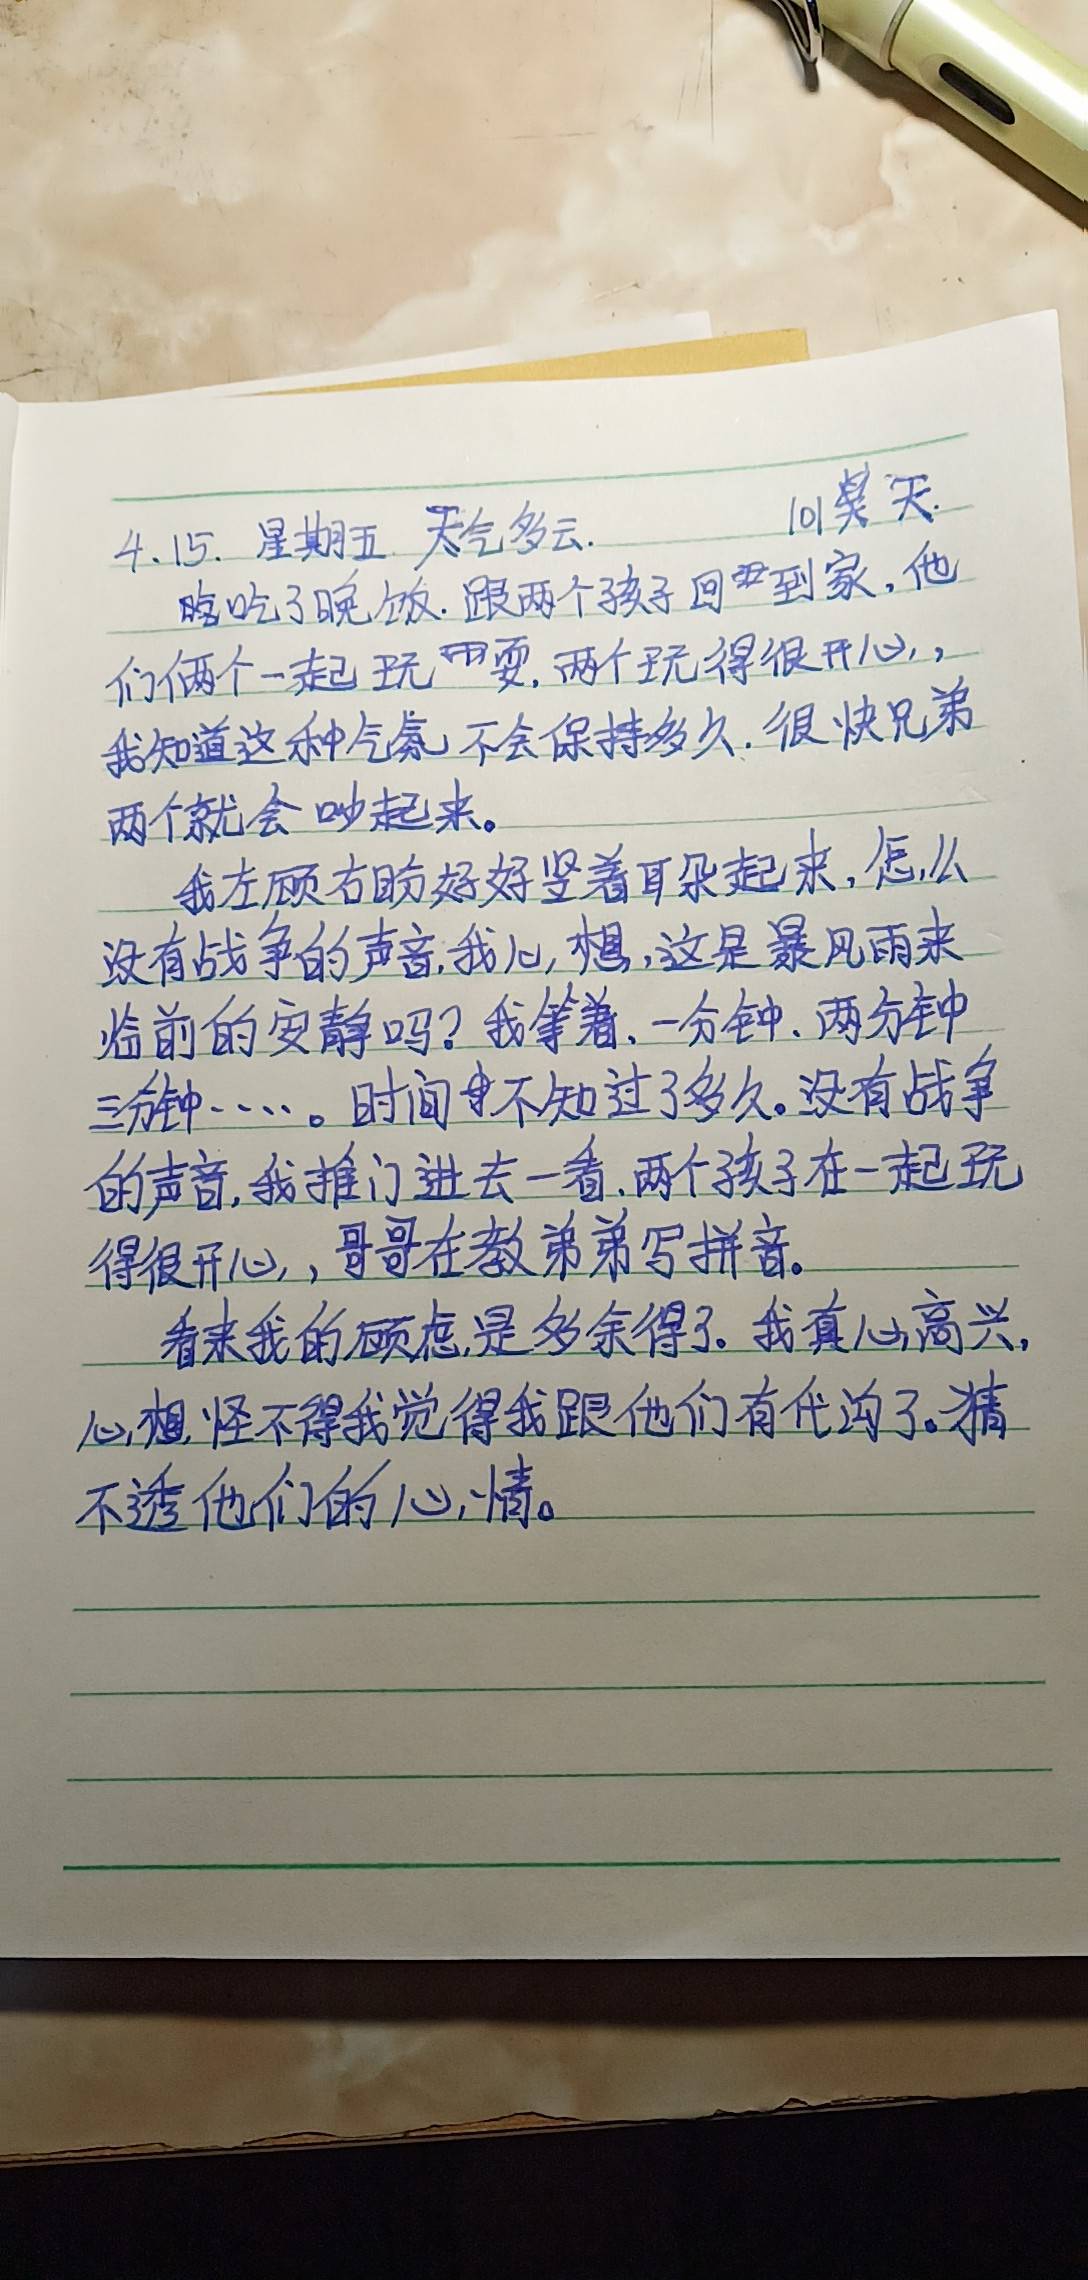 4.15. 星期五 天气多云. 101 天.
吃了晚饭.跟两个孩子回到家,他
们俩个一起玩耍,两个玩得很开心,
我知道这种气氛不会保持多久.很快兄弟
两个就会吵起来。
我左顾右盼好好竖着耳朵起来,怎么
没有战争的声音,我心想,这是暴风雨来
临前的安静吗?我等着、一分钟、两分钟
三分钟....。时间不知过了多久。没有战争
的声音,我推门进去一看、两个孩子在一起玩
得很开心,哥哥在教弟弟写拼音。
看来我的顾虑,是多余得了。我真心高兴,
心想,怪不得我觉得我跟他们有代沟了。猜
不透他们的心情。